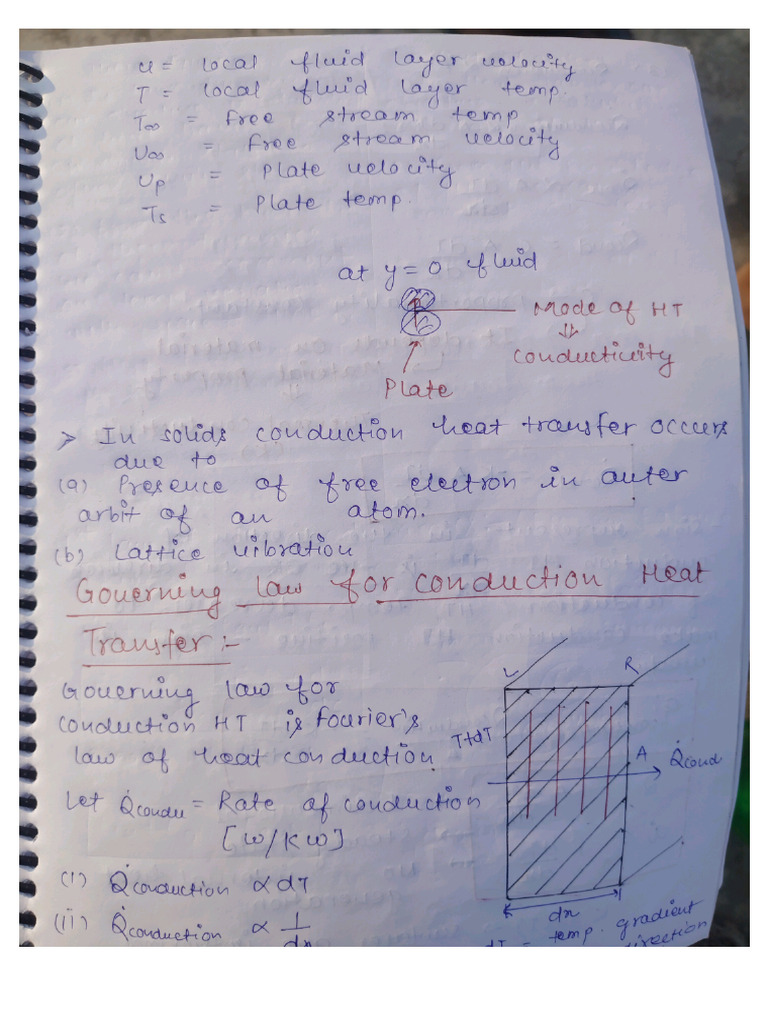 u = local fluid layer velocity
T = local fluid layer temp.
T∞ = free stream temp
U∞ = free stream velocity
Up = Plate velocity
Ts = Plate temp.
at y = 0 fluid
Mode of HT
⇓
Conductivity
Plate
> In solids conduction heat transfer occurs
due to
(a) Presence of free electron in outer
arbit of an atom.
(b) Lattice vibration
Governing law for conduction Heat
Transfer :-
Governing law for
conduction HT is fourier's
law of heat conduction.
Let Q̇condu = Rate of conduction
[w/kw]
(i) Q̇conduction ∝ dT
(ii) Q̇conduction ∝ 1/dn
L
R
T+dT
A
Q̇cond
dn
dT = temp. gradient
direction